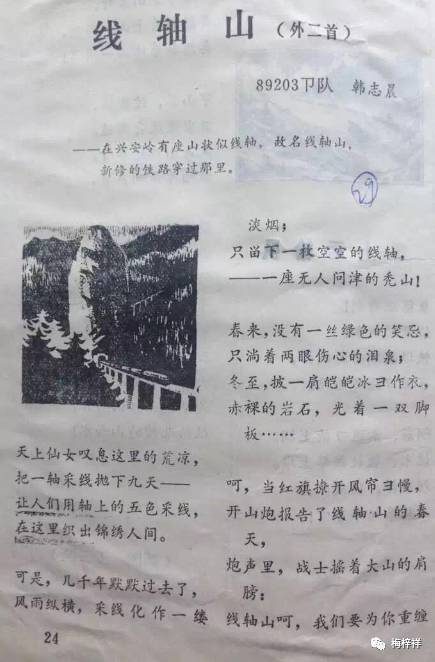 线轴山（外二首）
89203卩队 韩志晨
——在兴安岭有座山状似线轴，故名线轴山，
新修的铁路穿过那里。
29
天上仙女叹息这里的荒凉，
把一轴采线抛下九天——
让人们用轴上的五色采线，
在这里织出锦绣人间。
可是，几千年默默过去了，
风雨纵横，采线化作一缕
淡烟；
只留下一枚空空的线轴，
——一座无人问津的秃山！
春来，没有一丝绿色的笑，
只淌着两眼伤心的泪泉；
冬至，披一肩皑皑冰彐作衣，
赤裸的岩石，光着一双脚
板……
呵，当红旗撩开风帘彐幔，
开山炮报告了线轴山的春
天，
炮声里，战士摇着大山的肩
膀：
线轴山呵，我们要为你重缠
24
梅梓祥